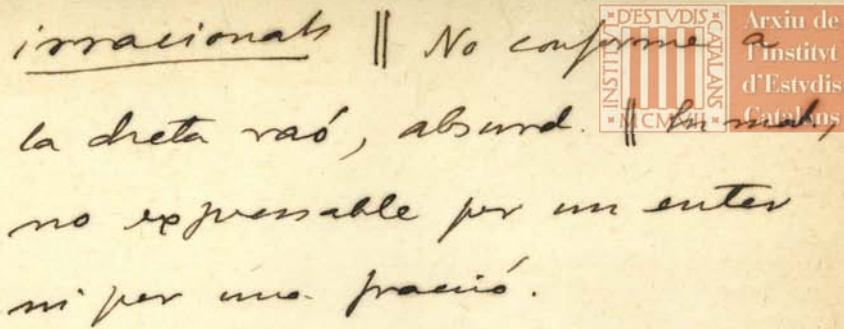 irracionals || No conforme a
la dreta raó, absurd. || En mat.,
no expressable per un enter
ni per una fracció.
INSTITVT D'ESTVDIS CATALANS
MCMVII
Arxiu de
l'Institvt
d'Estvdis
Catalans